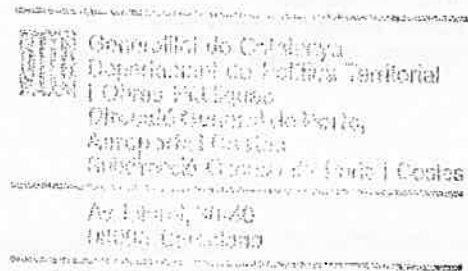 Generalitat de Catalunya
Departament de Política Territorial
i Obres Públiques
Direcció General de Ports,
Aeroports i Costes
Subdirecció General de Ports i Costes
Av.
Barcelona